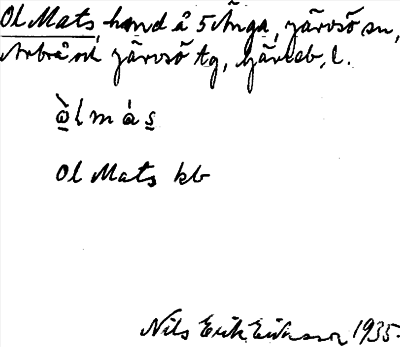 Ol Mats, hmd å 5 Änga, Järvsö sn,
Arbrå och Järvsö tg, Gävleb. l.
òlmás
Ol Mats kb
Nils Erik Eriksson 1935